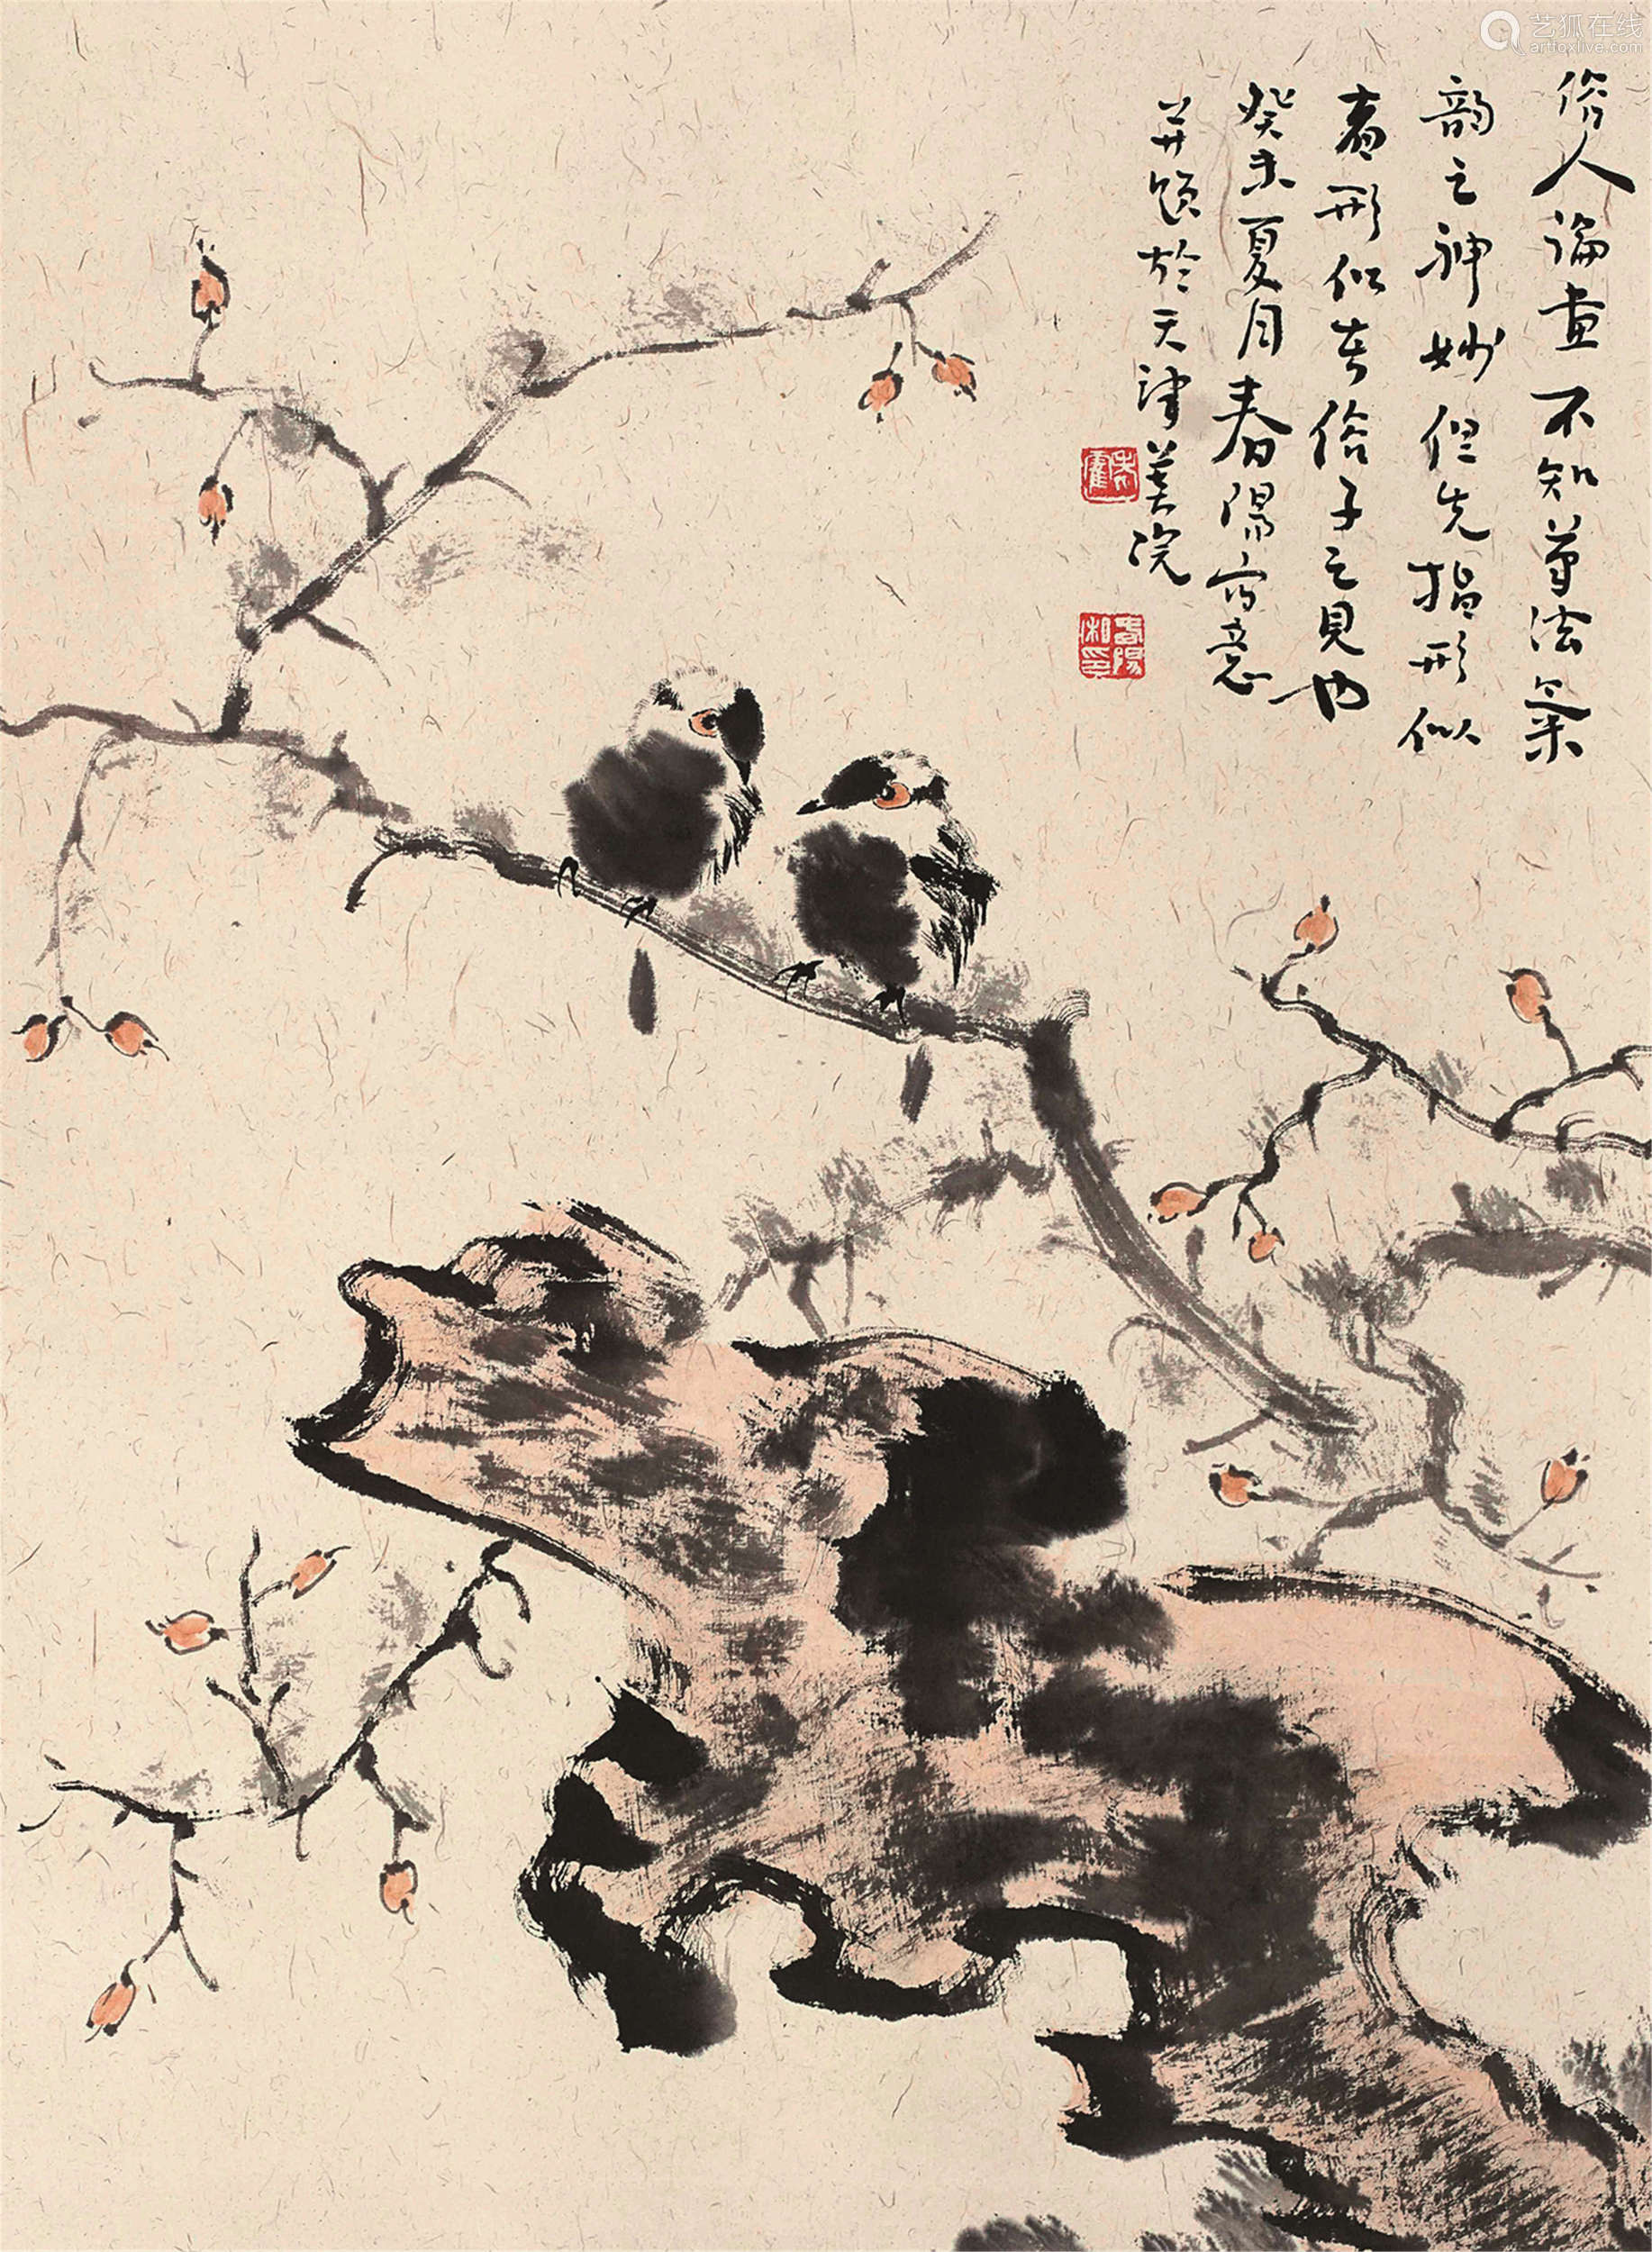 俗人論畫不知筆法氣
韵之神妙但先指形似
者形似者俗子之見也
癸未夏月春陽寫意
并題於天津美院
艺狐在线
artfoxlive.com